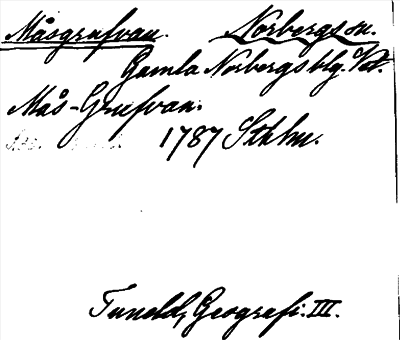 Måsgrufvan. Norbergs sn.
Gamla Norbergs blg. Vstm.
Mås-Grufvan.
1787 Sthlm.
Tuneld, Geografi. III.